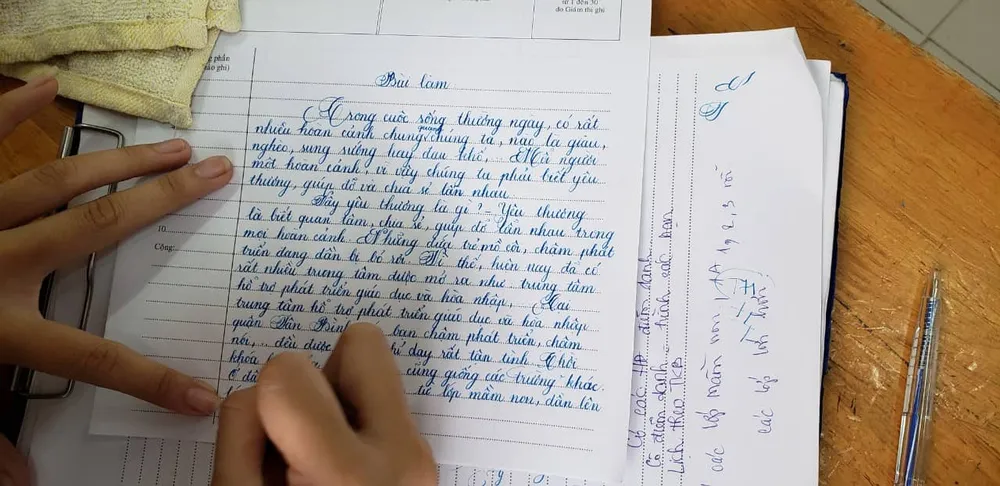 từ 1 đến 30
do Giám thị ghi
g phần
ảo ghi)
10
Cộng:
Bài làm
Trong cuộc sống thường ngày, có rất
nhiều hoàn cảnh chung quanh chúng ta, nào là giàu,
nghèo, sung sướng hay đau khổ,... Mỗi người
một hoàn cảnh, vì vậy chúng ta phải biết yêu
thương, giúp đỡ và chia sẻ lẫn nhau.
Vậy yêu thương là gì? - Yêu thương
là biết quan tâm, chia sẻ, giúp đỡ lẫn nhau trong
mọi hoàn cảnh. Những đứa trẻ mồ côi, chậm phát
triển đang dần bị bỏ rơi. Vì thế, hiện nay đã có
rất nhiều trung tâm được mở ra như trung tâm
hỗ trợ phát triển giáo dục và hòa nhập,... Tại
trung tâm hỗ trợ phát triển giáo dục và hòa nhập
quận Tân Bình bạn chậm phát triển, chậm
nói,... đều được chỉ dạy rất tận tình. Thời
khóa cũng giống các trường khác.
Ở đâ từ lớp mầm non, dần lên
Có các HĐ điểm danh
Có điểm danh hành sắc bạn
Lịch theo TKB
các lớp mầm non 1 HA 1, 2, 3 rồi
các lớp lớn!